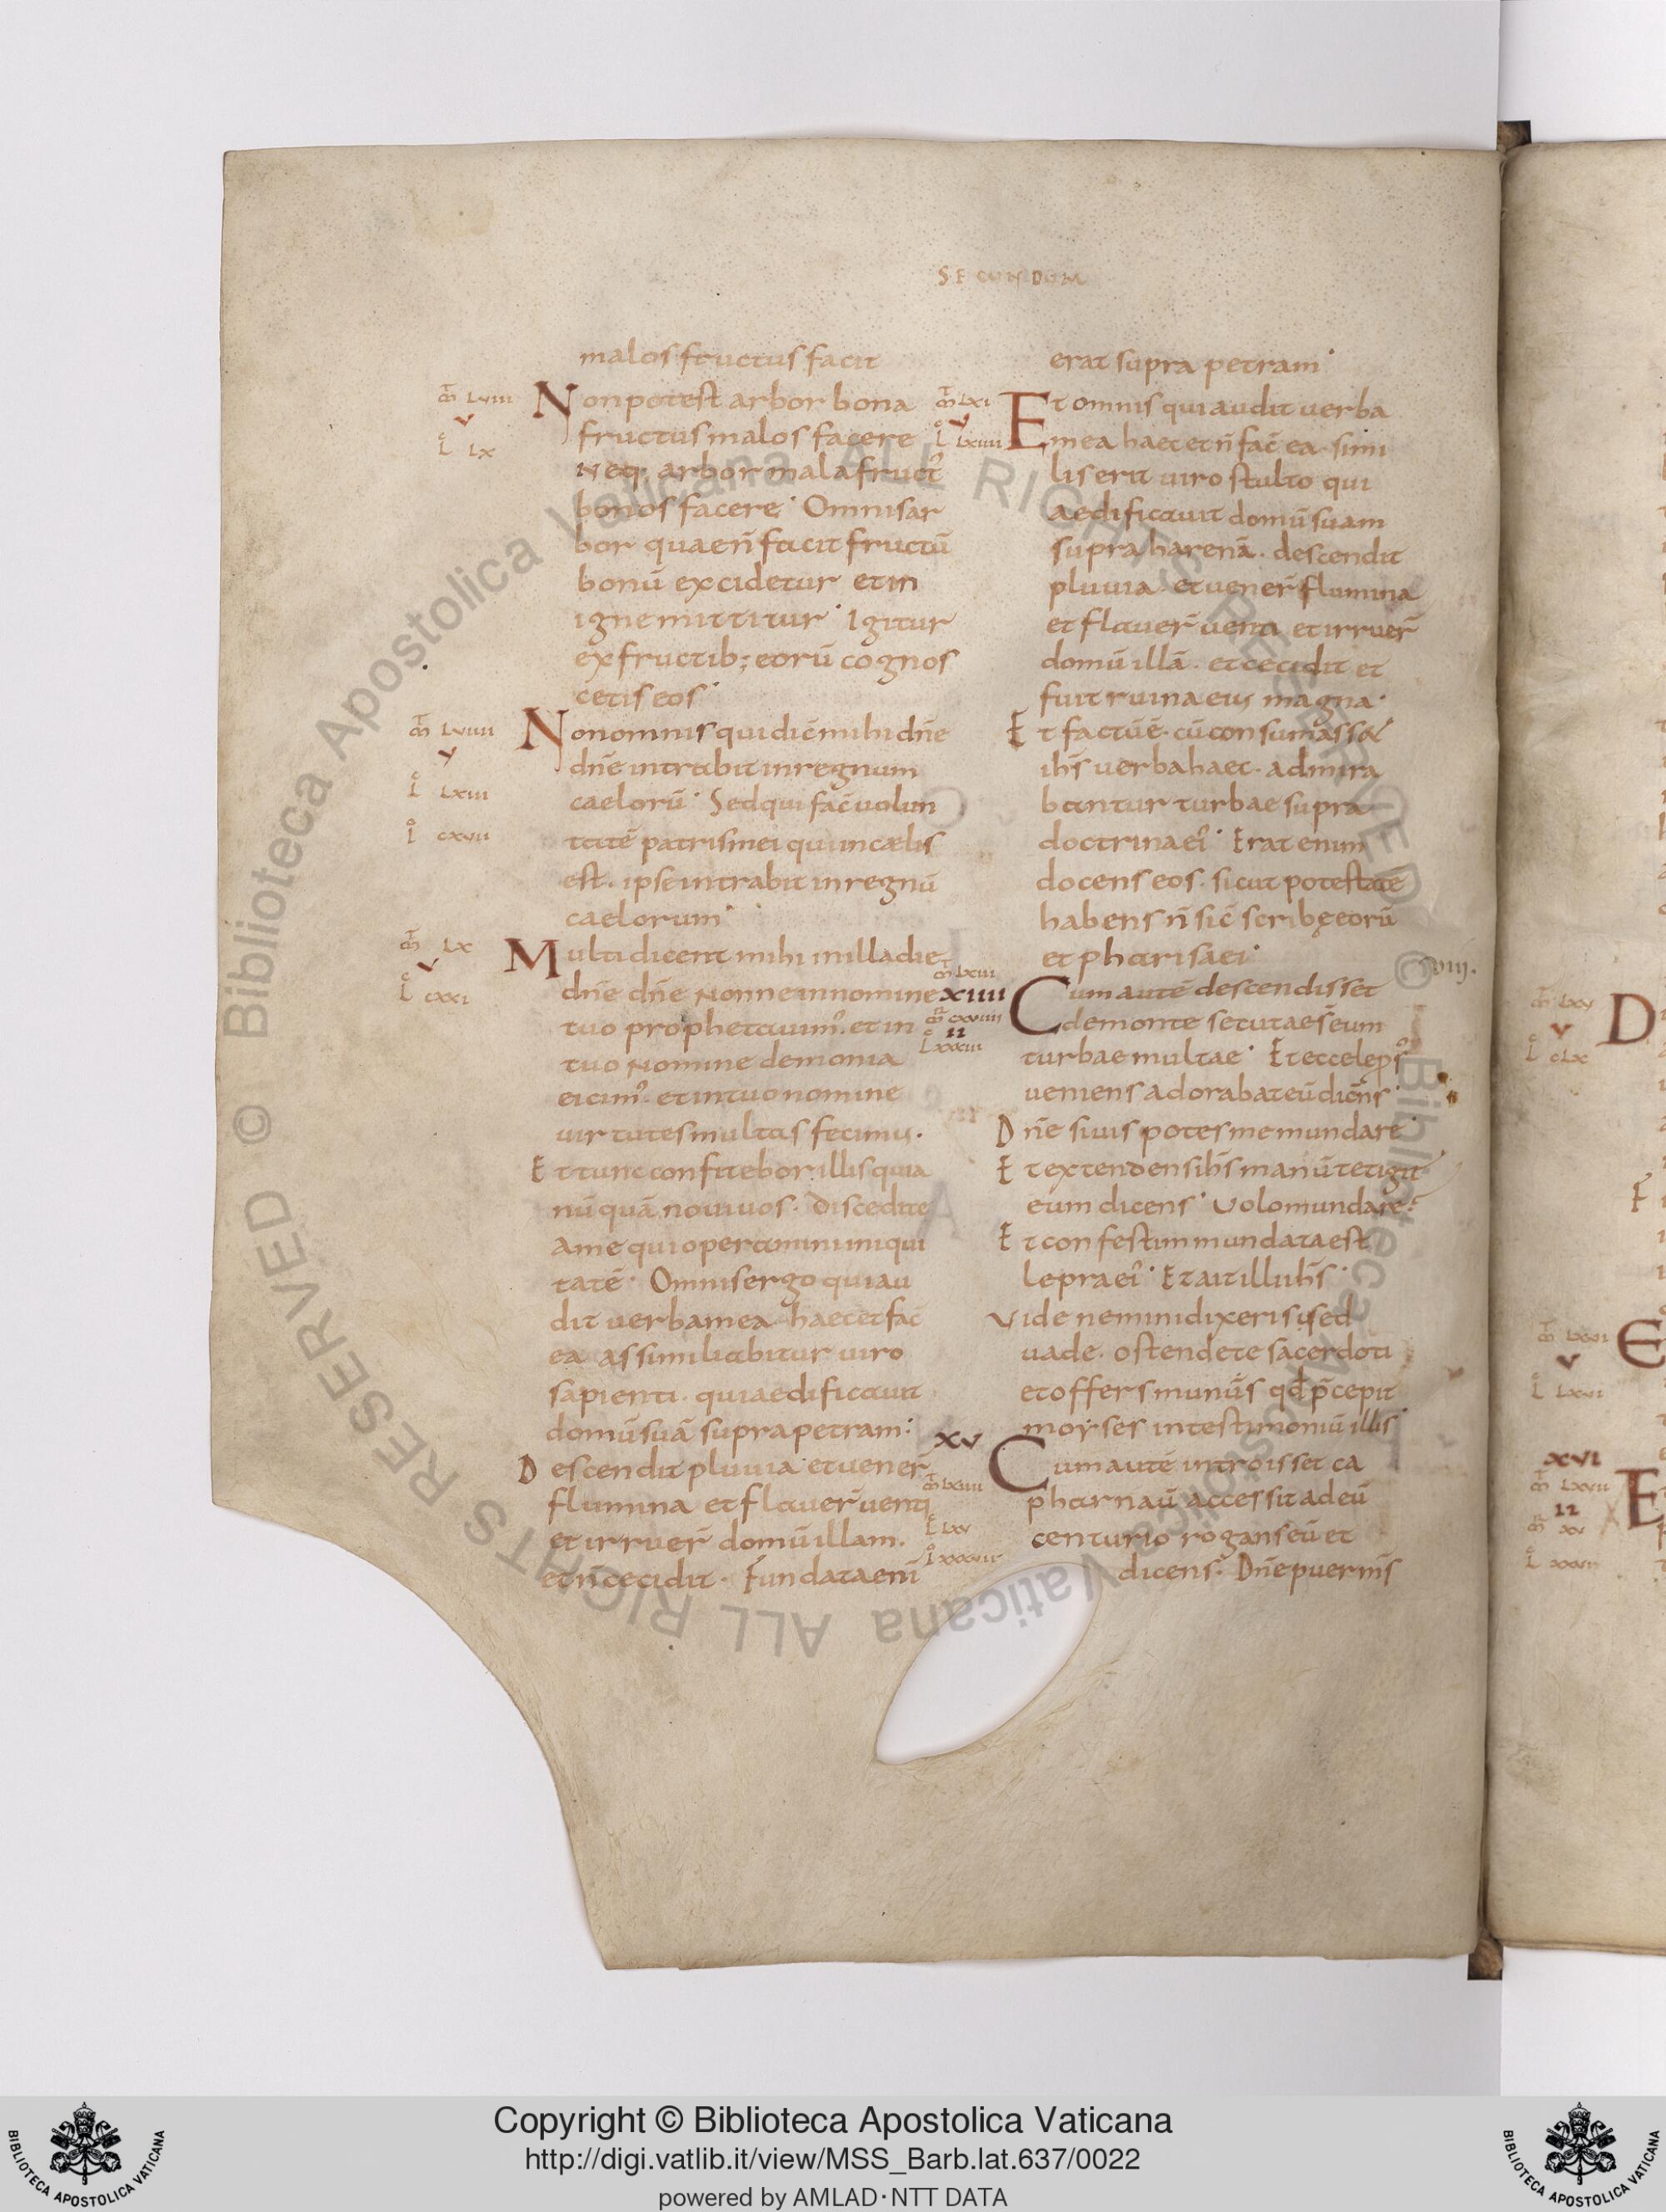 SECUNDUM
malos fructus facit
m̄ Lviii
v
L̊ Lx
Non potest arbor bona
fructus malos facere
Neq; arbor mala fruct᾿
bonos facere· Omnis ar
bor quae n̄ facit fructū
bonū excidetur et in
igne mittitur· Igitur
ex fructib; eorū cognos
cetis eos·
m̄ Lviiii
v
L̊ Lxiii
L̊ cxvii
Non omnis qui dic̄ mihi dn̄e
dn̄e intrabit in regnum
caelorū· Sed qui fac̄ volun
tatē patris mei qui in caelis
est· ipse intrabit in regnū
caelorum·
m̄ Lx
v
L̊ cxxi
Multi dicent mihi in illa die
dn̄e dn̄e Nonne in nomine
tuo prophetauim᾿· et in
tuo Nomine demonia
eicim᾿· et in tuo nomine
uirtutes multas fecimus·
Et tunc confitebor illis quia
nūquā noui uos· Discedite
a me qui operamini iniqui
tatē· Omnis ergo qui au
dit uerba mea haec et fac̄
ea assimilabitur uiro
sapienti· qui aedificauit
domū suā supra petram·
Descendit pluuia et uener̄
flumina et flauer̄ uenti
et irruer̄ domū illam·
et n̄ cecidit· Fundata eni̅
erat supra petram·
m̄ Lxi
v
L̊ Lxiiii
Et omnis qui audit uerba
mea haec et n̄ fac̄ ea· simi
lis erit uiro stulto qui
aedificauit domū suam
supra harenā· descendit
pluuia· et uener̄ flumina
et flauer̄ uenti et irruer̄
domū illā· et cecidit et
fuit ruina eius magna·
Et factū ē· cū consumasset
ih̄s uerba haec· admira
bantur turbae supra
doctrina ei᾿· Erat enim
docens eos· sicut potestatē
habens n̄ sic̄ scribę eorū
et pharisaei·
m̄ Lxiii
xiiii
Cum autē descendisset
de monte secutae s̄ eum
turbae multae· Et ecce lepros᾿
ueniens adorabat eū dic̄ns·
Dn̄e si uis potes me mundare·
Et extendens ih̄s manū tetigit
eum dicens· Volo mundare·
Et confestim mundata est
lepra ei᾿· Et ait illi ih̄s·
Vide nemini dixeris sed
uade· ostende te sacerdoti
et offers munus qd̄ p̄cepit
moyses in testimoniū illis·
xv
Cum autē introisset ca
pharnaū accessit ad eū
centurio rogans eū et
dicens· Dn̄e puer m̄s
m̄ Lxx
v
L̊ cLx
D
m̄ Lxxi
v
E
xvi
E
Copyright © Biblioteca Apostolica Vaticana
http://digi.vatlib.it/view/MSS_Barb.lat.637/0022
powered by AMLAD·NTT DATA
BIBLIOTECA APOSTOLICA VATICANA
BIBLIOTECA APOSTOLICA VATICANA
© Biblioteca Apostolica Vaticana ALL RIGHTS RESERVED © Biblioteca Apostolica Vaticana ALL RIGHTS RESERVED